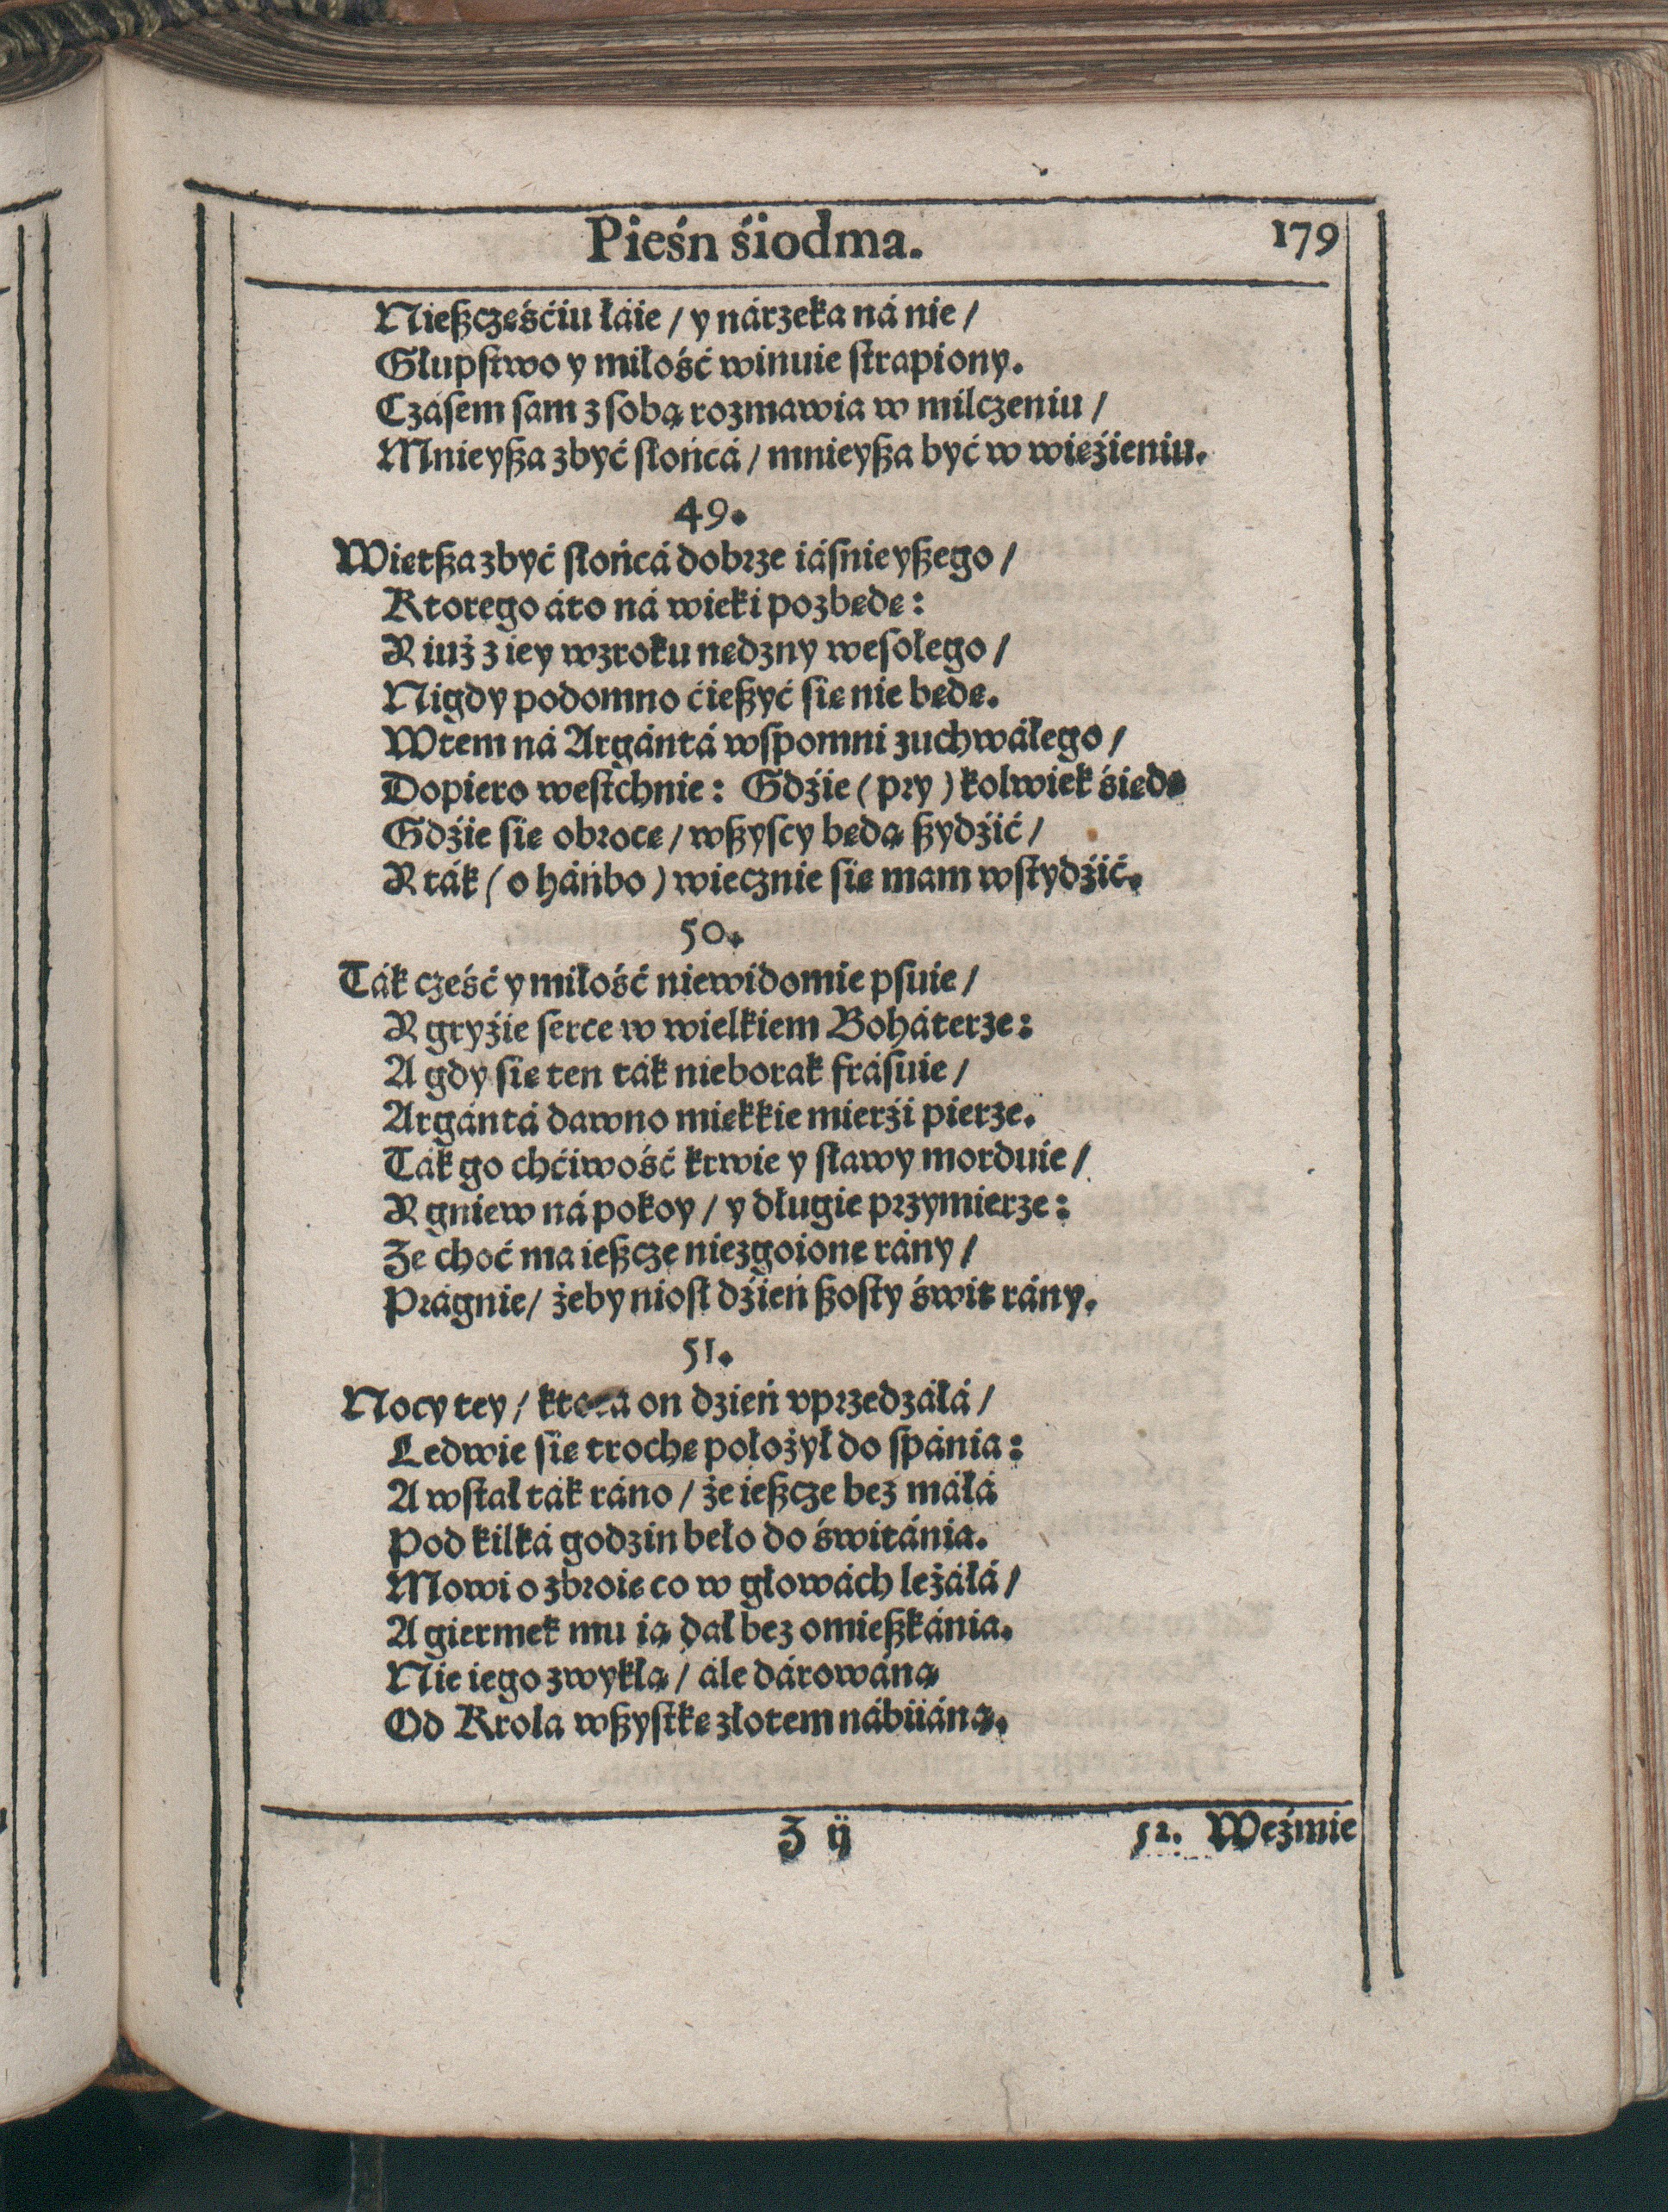 Pieśń śiodma. 179
Nießczęśćiu łáie / y nárzeka ná nie /
Głupſtwo y miłość winuie ſtrapiony.
Czáſem ſam z ſobą rozmawia w milczeniu /
Mnieyßa zbyć ſłońcá / mnieyßa być w więźieniu.
49.
Więtßa zbyć ſłońcá dobrze iáśnieyßego /
Ktorego áto ná wieki pozbędę:
Y iuż z iey wzroku nędzny weſołego /
Nigdy podomno ćießyć się nie będę.
Wtem ná Argántá wſpomni zuchwáłego /
Dopiero weſtchnie: Gdźie (pry) kolwiek śiędę
Gdźie się obrocę / wßyſcy będą ßydźić /
Y ták (o háńbo) wiecznie się mam wſtydźić.
50.
Ták cześć y miłość niewidomie pſuie /
Y gryźie ſerce w wielkiem Boháterze:
A gdy się ten ták nieborak fráſuie /
Argántá dawno miękkie mierźi pierze.
Ták go chćiwość krwie y ſławy morduie /
Y gniew ná pokoy / y długie przymierze:
Że choć ma ießcze niezgoione rány /
Prágnie / żeby nioſł dźień ßoſty świt rány.
51.
Nocy tey / ktora on dzień vprzedzáłá /
Ledwie się trochę położył do ſpánia:
A wſtał ták ráno / że ießcze bez máłá
Pod kilká godzin beło do świtánia.
Mowi o zbroię co w głowách leżáłá /
A giermek mu ią dał bez omießkánia.
Nie iego zwykłą / ále dárowáną
Od Krola wßyſtkę złotem nábiiáną.
Z ij 52. Weźmie